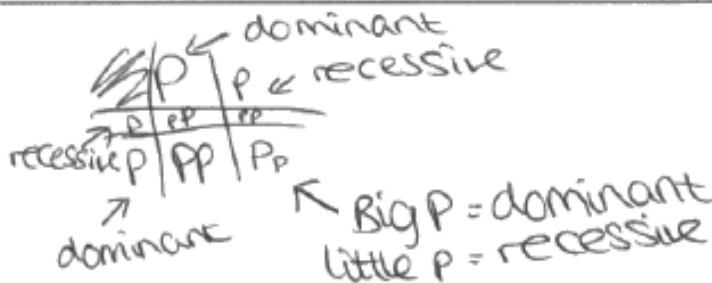 dominant
P p recessive
p Pp pp
recessive P PP Pp
Big P = dominant
dominant little p = recessive